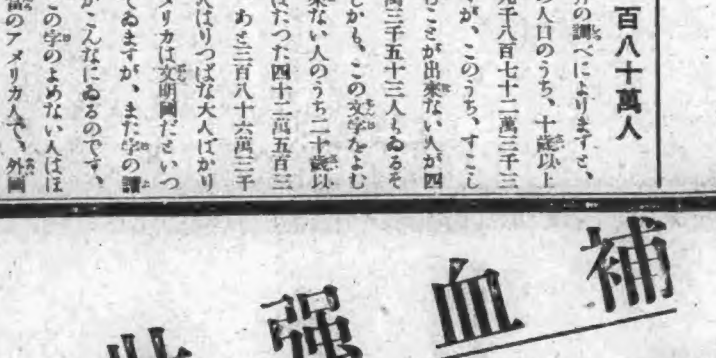 百八十萬人
の調べによりますと、
の人口のうち、十歳以上
九千八百七十二萬三千三
が、このうち、すこし
むことが出來ない人が四
萬三千五十三人もゐるそ
しかも、この文字をよむ
來ない人のうち二十歳以
はたつた四十二萬五百三
あと三百八十六萬三千
人はりつぱな大人ばかり
メリカは文明國だといつ
てゐますが、また字の讀
がこんなにゐるのです、
この字のよめない人はほ
のアメリカ人で、外國
補血强壯